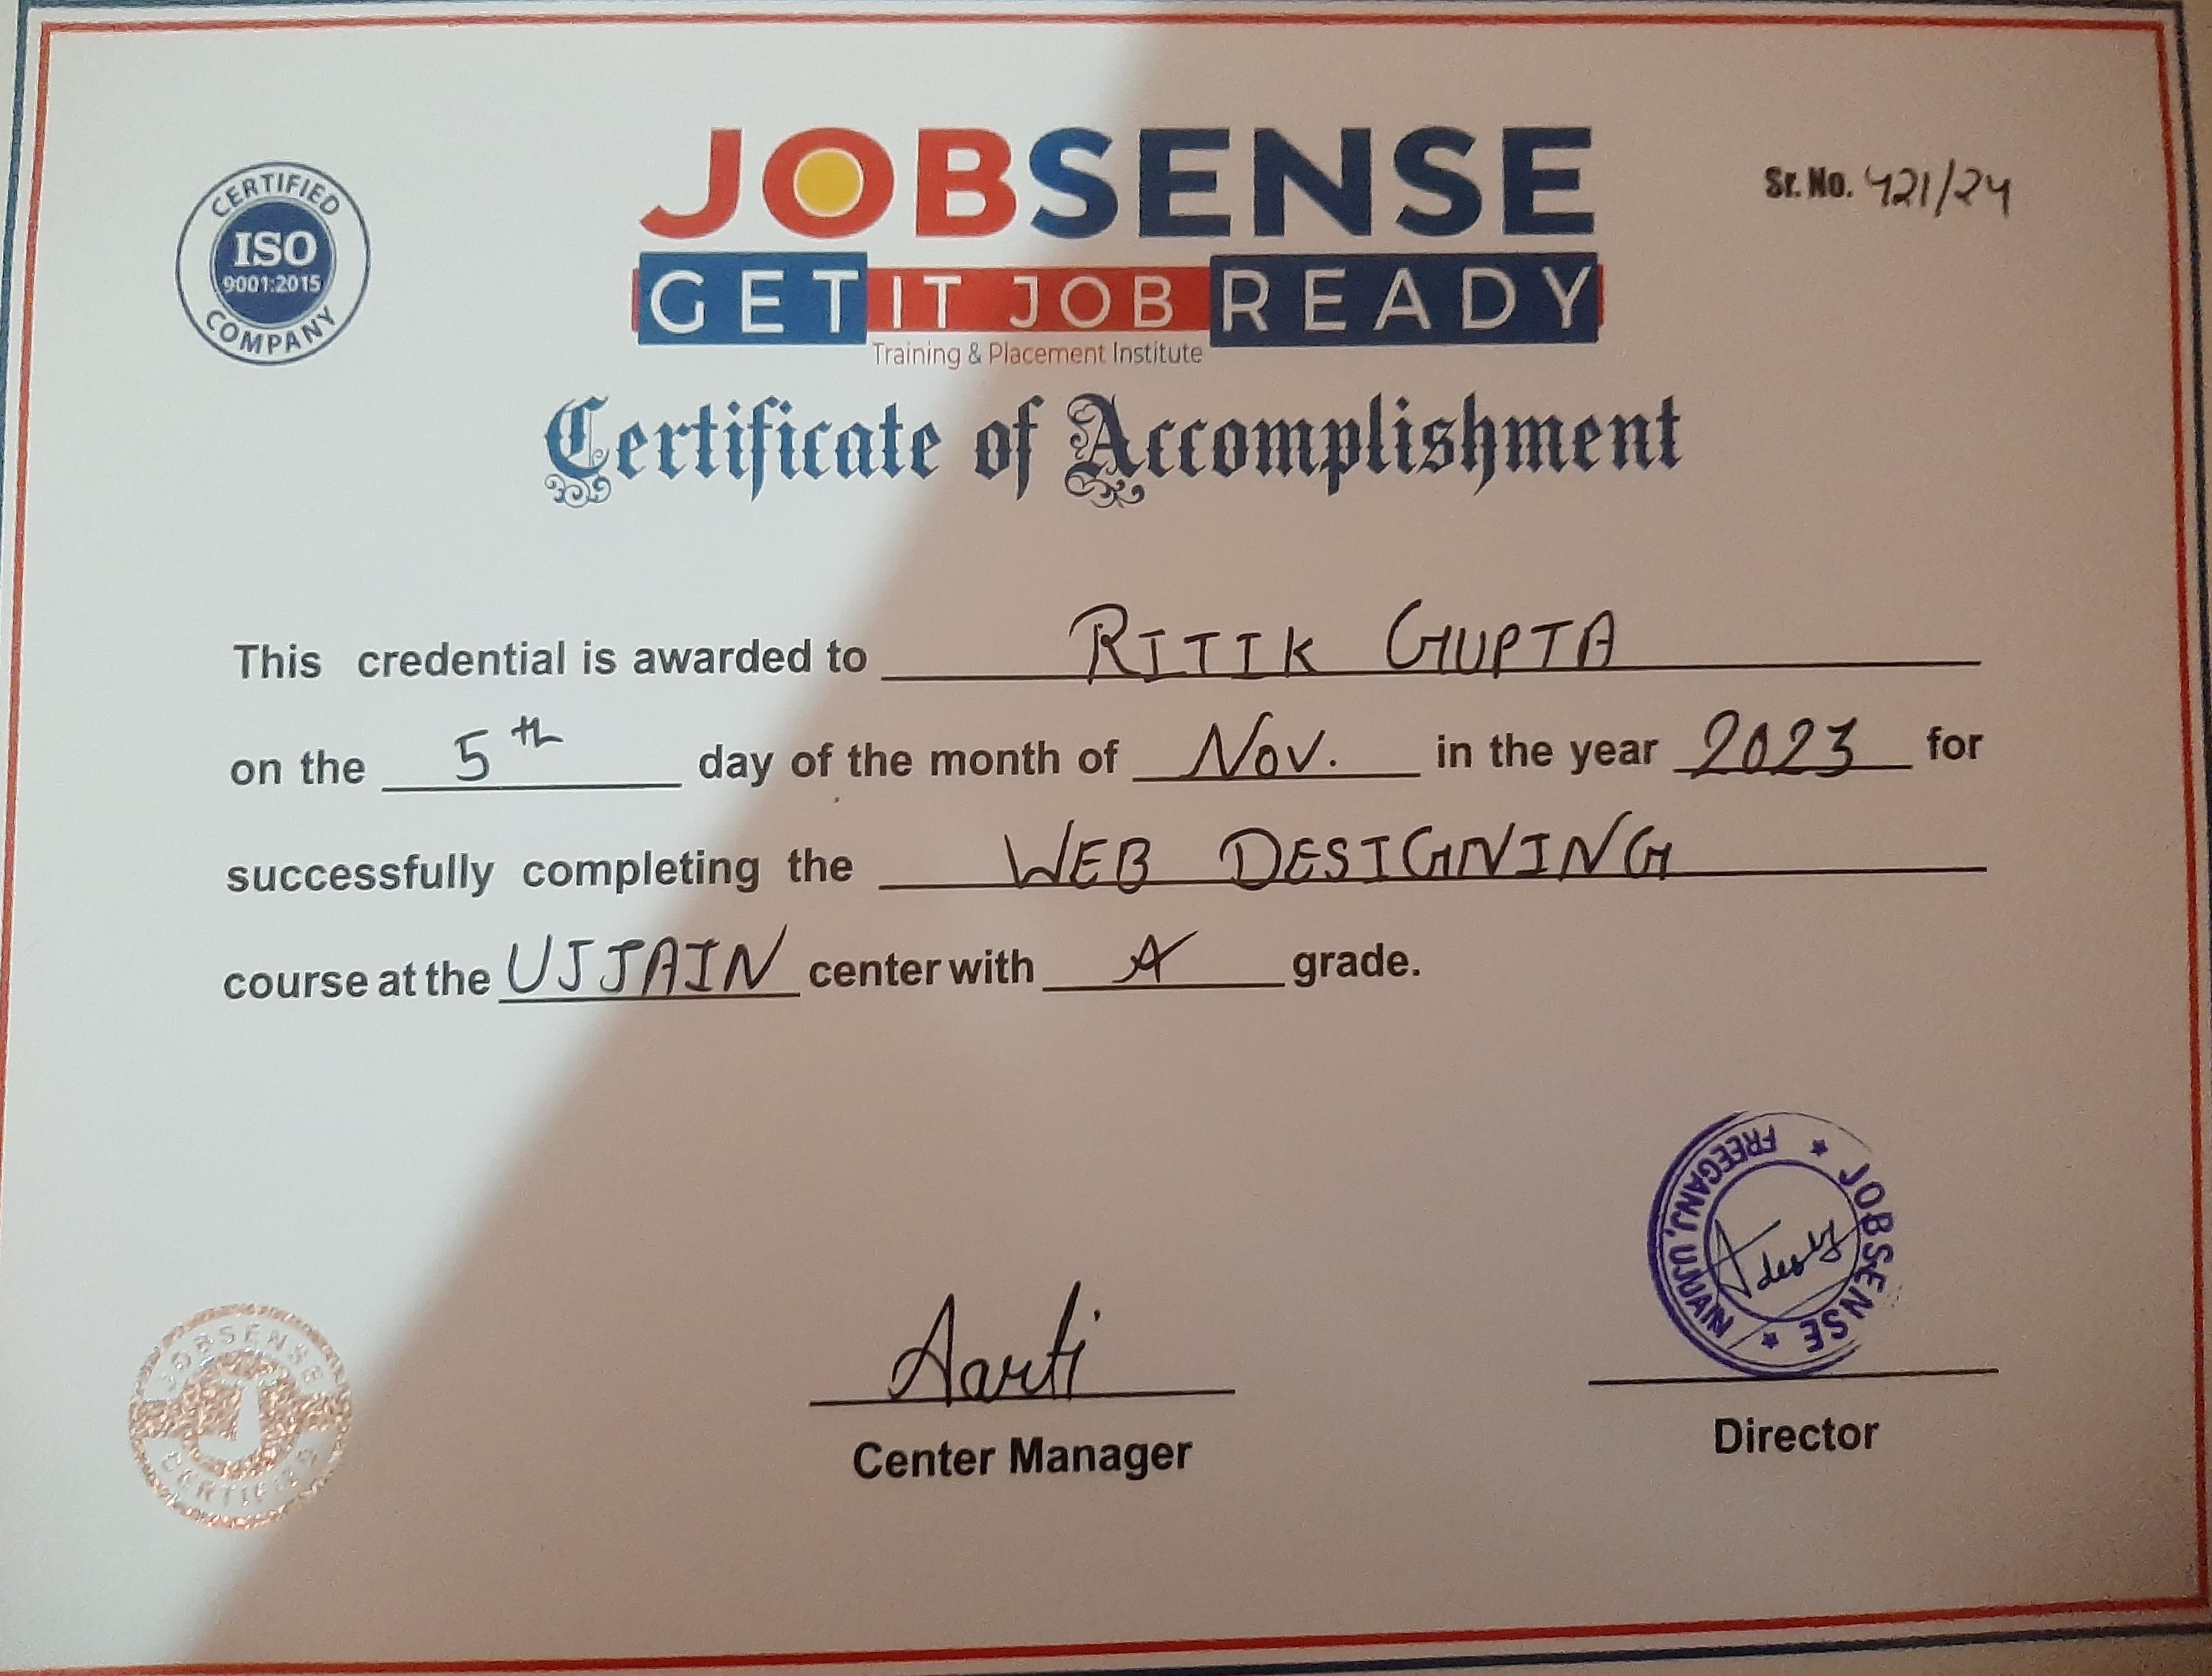 CERTIFIED
ISO
9001:2015
COMPANY
JOBSENSE
GET IT JOB READY
Training & Placement Institute
Sr. No. 421/24
Certificate of Accomplishment
This credential is awarded to RITIK GUPTA
on the 5th day of the month of Nov. in the year 2023 for
successfully completing the WEB DESIGNING
course at the UJJAIN center with A grade.
JOBSENSE
CERTIFIED
Aarti
Center Manager
JOBSENSE
FREEGANJ, UJJAIN
Director